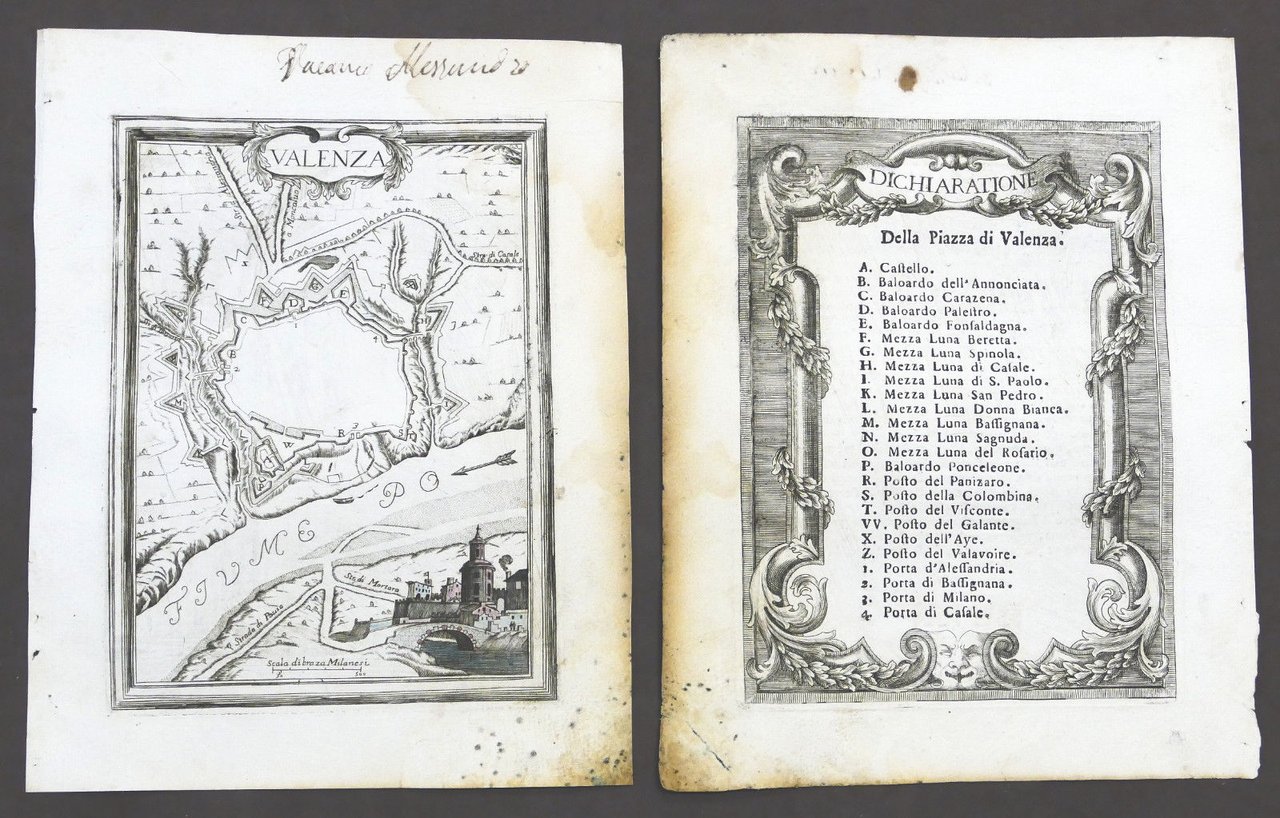 VALENZA
Stra. di Casale
C
D
E
B
2
1
4
M
W
R
3
FIVME PO
Sta. di Mortara
Strada di Pauia
Scala di braza Milanesi
P. 500
DICHIARATIONE
Della Piazza di Valenza.
A. Caſtello.
B. Baloardo dell'Annonciata.
C. Baloardo Carazena.
D. Baloardo Paleſtro.
E. Baloardo Fonſaldagna.
F. Mezza Luna Beretta.
G. Mezza Luna Spinola.
H. Mezza Luna di Caſale.
I. Mezza Luna di S. Paolo.
K. Mezza Luna San Pedro.
L. Mezza Luna Donna Bianca.
M. Mezza Luna Baſſignana.
N. Mezza Luna Sagnuda.
O. Mezza Luna del Roſario.
P. Baloardo Ponceleone.
R. Poſto del Panizaro.
S. Poſto della Colombina.
T. Poſto del Viſconte.
VV. Poſto del Galante.
X. Poſto dell'Aye.
Z. Poſto del Valavoire.
1. Porta d'Aleſſandria.
2. Porta di Baſſignana.
3. Porta di Milano.
4. Porta di Caſale.